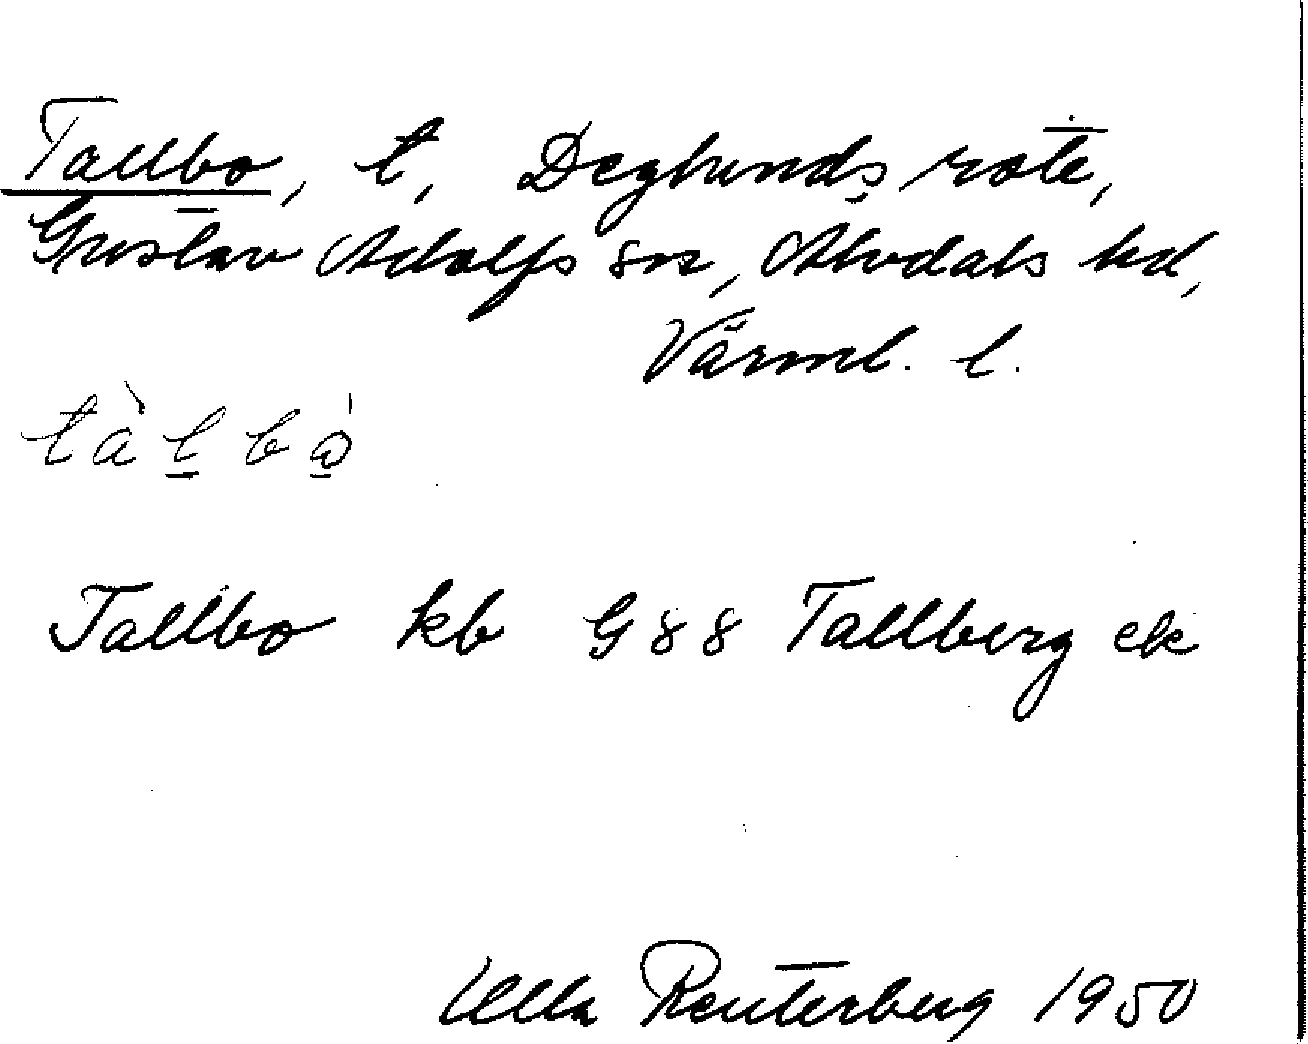 Tallbo, t, Deglunds rote,
Gustav Adolfs sn, Älvdals hd,
Värml. l.
tàl̲bo̲̍
Tallbo kb G88 Tallberg ek
Ulla Reuterberg 1950